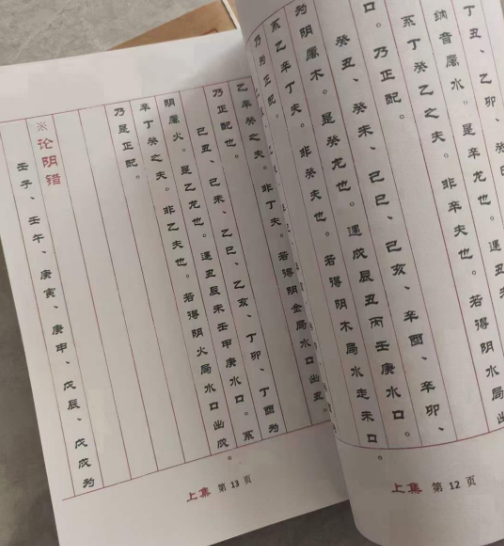 丁丑、乙卯、癸
纳音属水。是辛龙也。逢
系丁癸乙之夫。非辛夫也。若得阴水局出
口。乃正配。
癸丑、癸未、己巳、己亥、辛酉、辛卯、
为阴属木。是癸龙也。逢戌辰丑丙壬庚水口。
系乙辛丁夫。非癸夫也。若得阴木局水走未口。
乃为正配。
上集 第 12 页
乙辛癸之夫。非丁夫。若得阴金局水口出丑。
乃正配也。
己丑、己未、乙巳、乙亥、丁卯、丁酉为
阴属火。是乙龙也。逢丑辰未壬甲庚水口。系
辛丁癸之夫。非乙夫也。若得阴火局水口出戌。
乃是正配。
※论阴错
壬子、壬午、庚寅、庚申、戊辰、戊戌为
上集 第 13 页